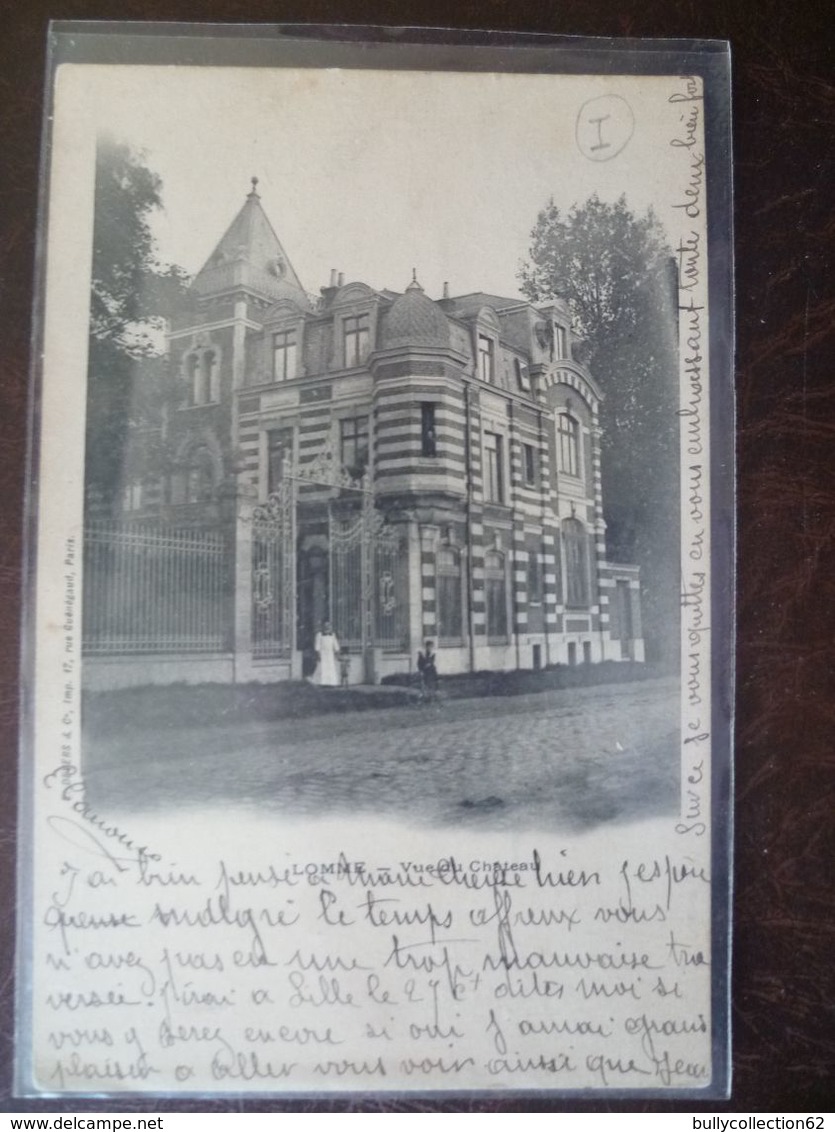 I
LOMME — Vue du Château
& Cie, Imp. 17, rue Guénégaud, Paris.
J'ai bien pensé à Marie hier j'espère
que malgré le temps affreux vous
n'avez pas eu une trop mauvaise tra
versée. j'irai a Lille le 27 ct dites moi si
vous y serez encore si oui j'aurai grand
plaisir a aller vous voir ainsi que Jean
Sur ce je vous quitte en vous embrassant toute deux bien for
bullycollection62